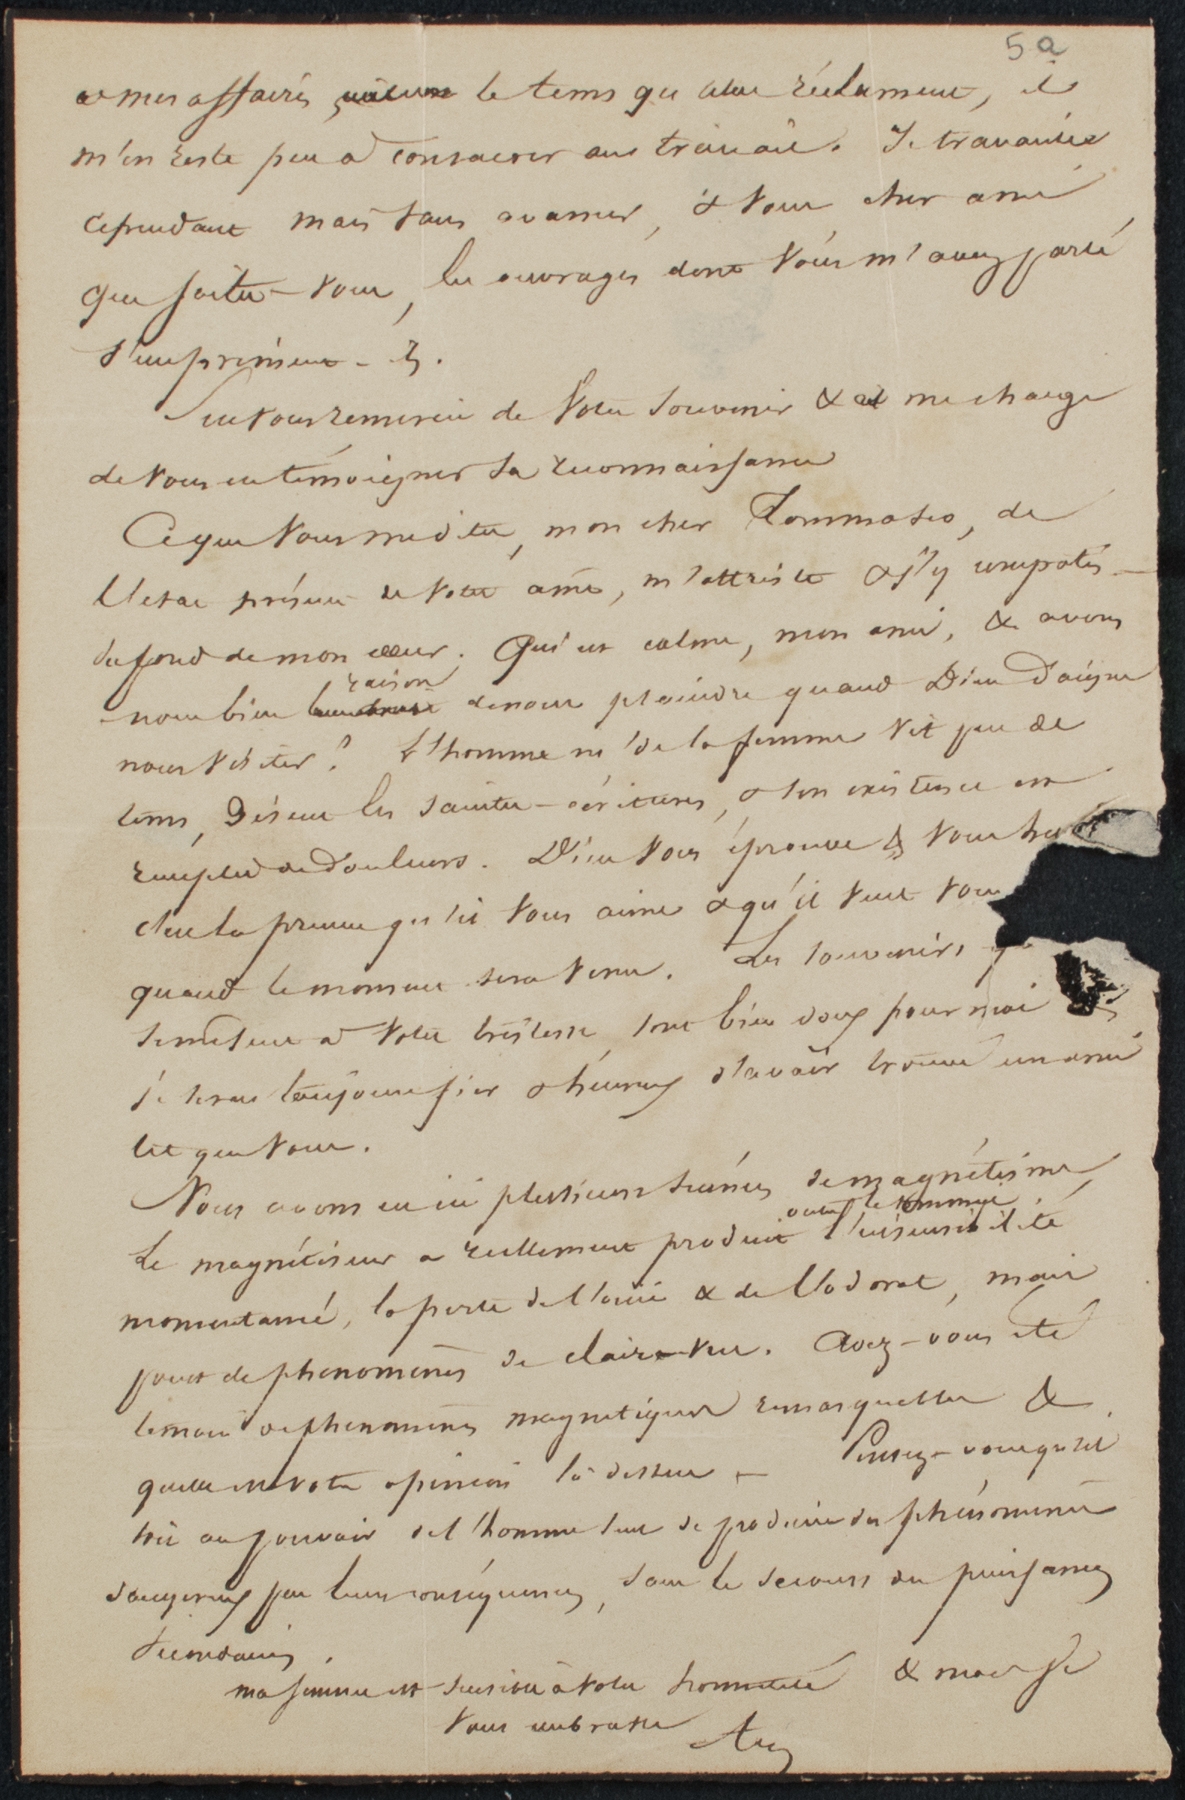 5a
a mes affaires le tems qu'elles réclament, il
m'en reste peu à consacrer au travail. Je travaille
cependant mais sans avancer, & vous cher ami
que faites-vous, les ouvrages dont vous m'avez parlé
s'impriment-ils.
vous remercie de votre souvenir & me charge
de vous en témoigner sa reconnaissance
Ce que vous me dites, mon cher Tommaseo, de
l'état présent de votre âme, m'attriste & j'y compatis
du fond de mon cœur. Qui est calme, mon ami, & avons
nous bien raison de nous plaindre quand Dieu daigne
nous visiter? L'homme né de la femme vit peu de
tems, disent les saintes-écritures, & son existence est
remplie de douleurs. Dieu vous éprouve & vous
c'est la preuve qu'il vous aime & qu'il veut vous
quand le moment sera venu. Les souvenirs
se mêlent à votre tristesse sont bien doux pour moi
je serai toujours fier & heureux d'avoir trouvé un ami
tel que vous.
Nous avons eu ici plusieurs séances de magnétisme,
Le magnétiseur a réellement produit outre le sommeil l'insensibilité
momentanée, la perte de l'ouïe & de l'odorat, mais
point de phénomènes de claire-vue. Avez-vous été
témoin de phénomènes magnétiques remarquables &
quelle est votre opinion là dessus - Pensez-vous qu'il
soit au pouvoir de l'homme seul de produire des phénomènes
dangereux par leurs conséquences, sans le secours des puissances
secondaires.
ma femme est sensible à votre honnêteté & moi je
vous embrasse